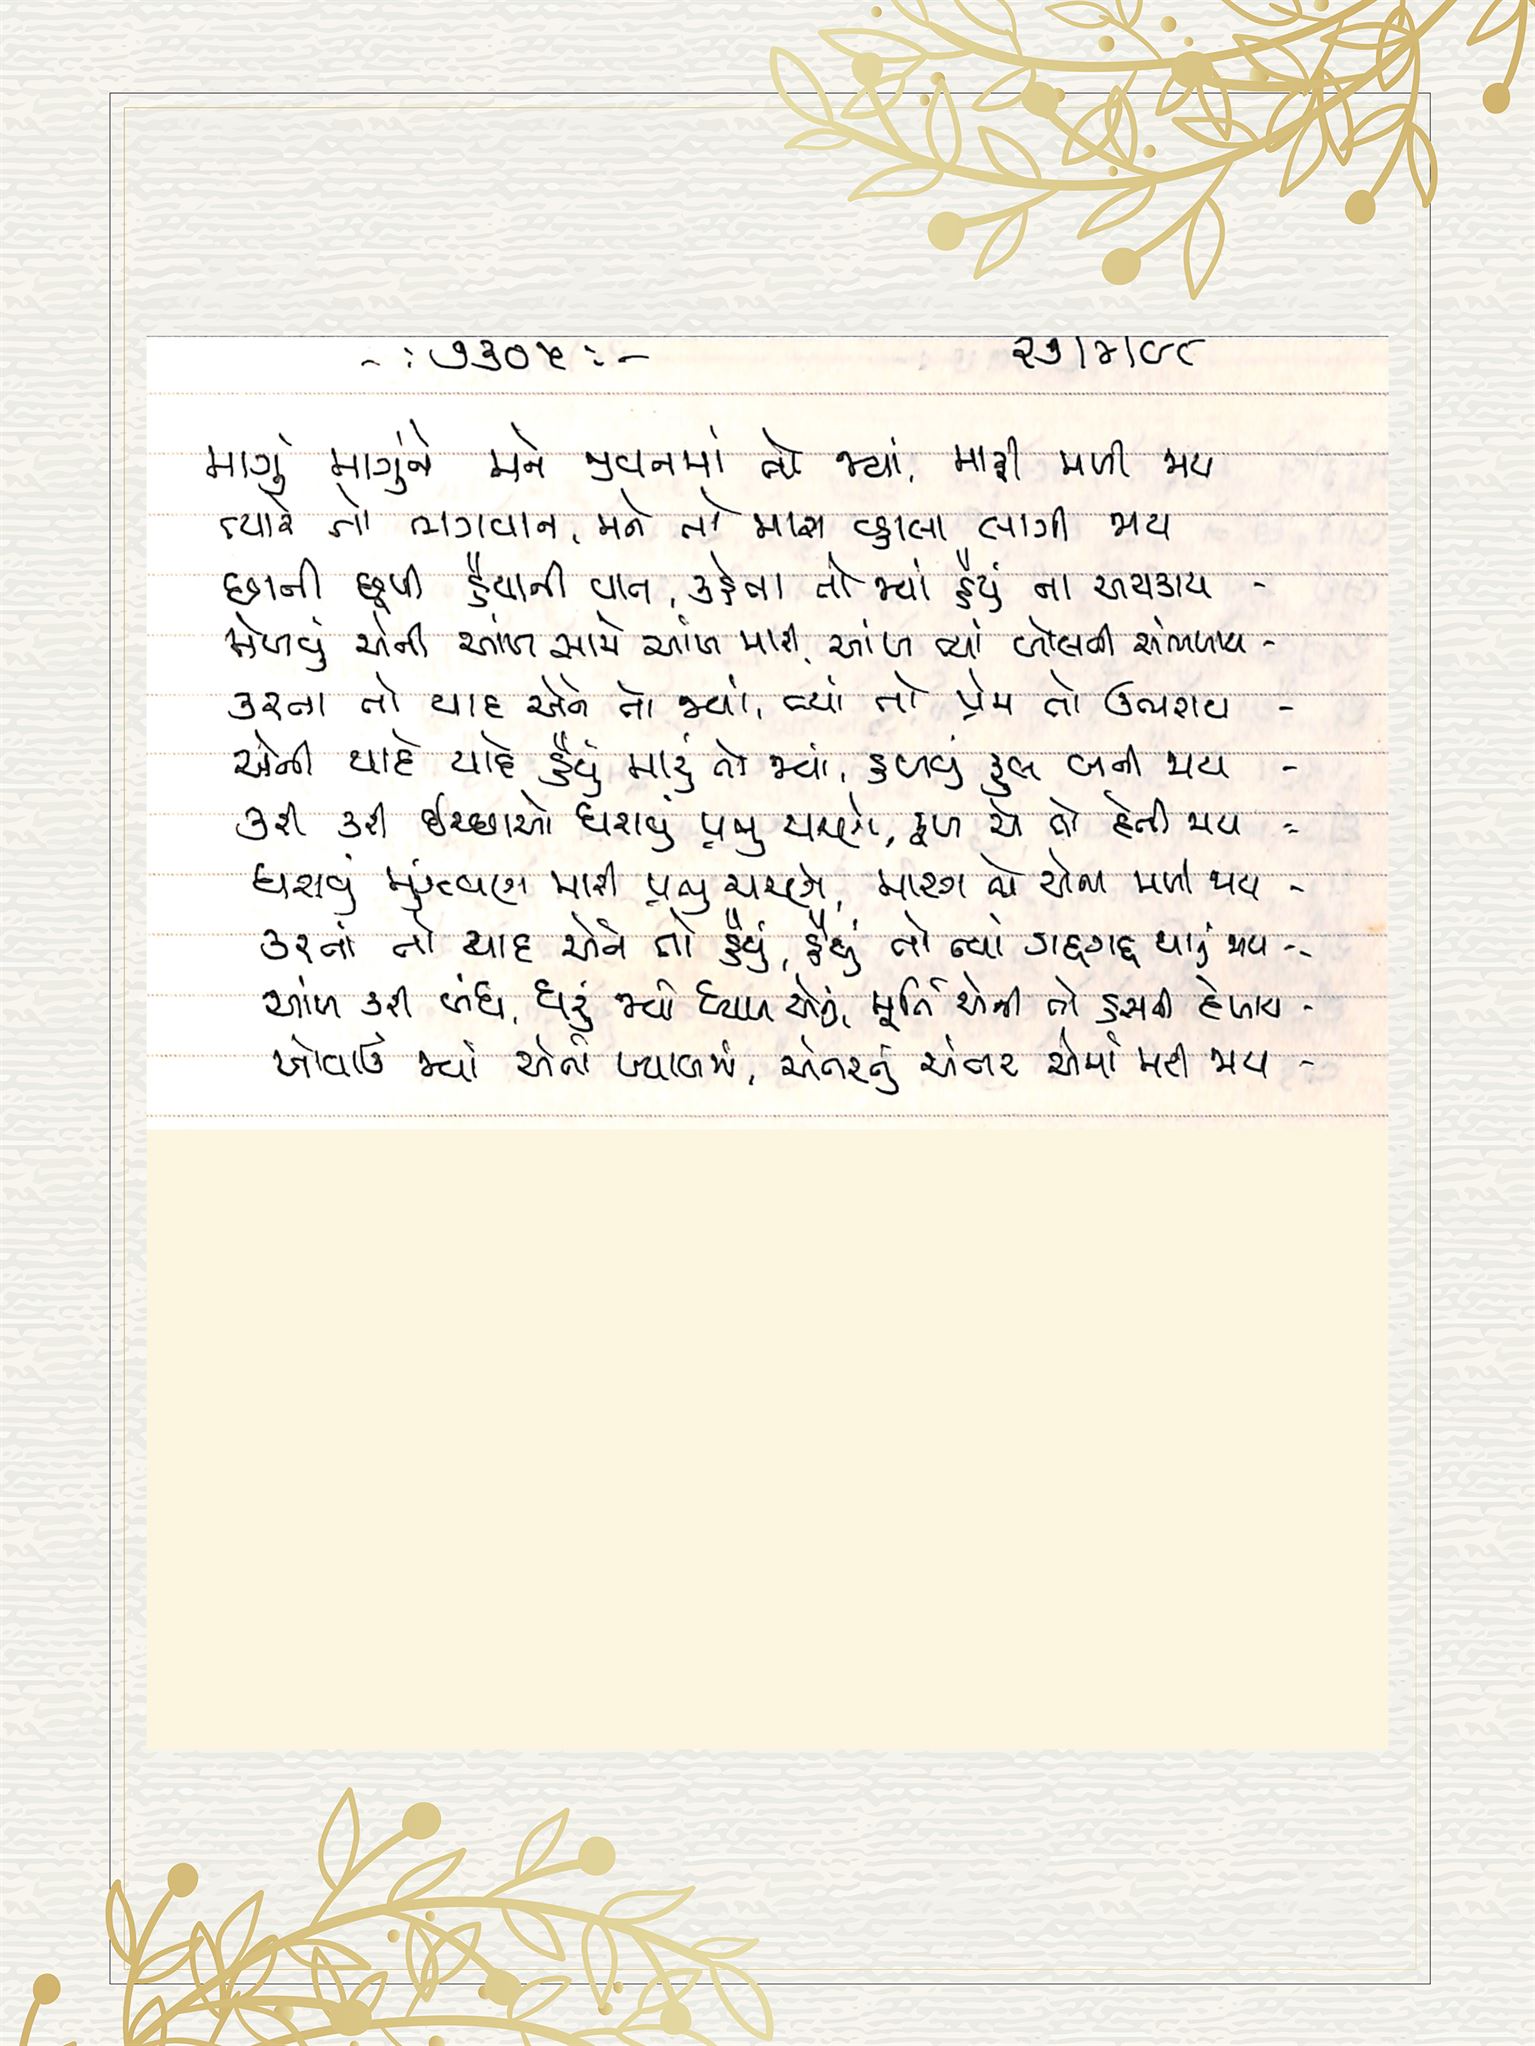 -:૭૩૦૫:- ૨૭|૪|૯૮
માગું માગુંને મને જીવનમાં તો જ્યાં, મારી મળી જાય
ત્યારે તો ભગવાન, મને તો મારા વ્હાલા લાગી જાય
છાની છૂપી હૈયાની વાત, કહેતા તો જ્યાં હૈયું ના અચકાય -
મેળવું એની આંખ સામે આંખ મારી, આંખ ત્યાં બોલતી સંભળાય -
કરતા તો યાદ એને તો જ્યાં, ત્યાં તો પ્રેમ તો ઉભરાય -
એની યાદે યાદે હૈયું મારું તો જ્યાં, હળવું ફુલ બની જાય -
કરી કરી ઈચ્છાઓ ધરાવું પ્રભુ ચરણે, ફળ એ તો દેતી જાય -
ધરાવું મુંઝવણ મારી પ્રભુ ચરણે, મારગ તો એના મળી જાય -
કરતાં તો યાદ એને તો હૈયું, હૈયું તો ત્યાં ગદ્દગદ્દ થાતું જાય -
આંખ કરી બંધ, ધરું જ્યાં ધ્યાન એનું, મૂર્તિ એની તો હસતી દેખાય -
ખોવાઉં જ્યાં એના ખ્યાલમાં, અંતરનું અંતર એમાં મટી જાય -